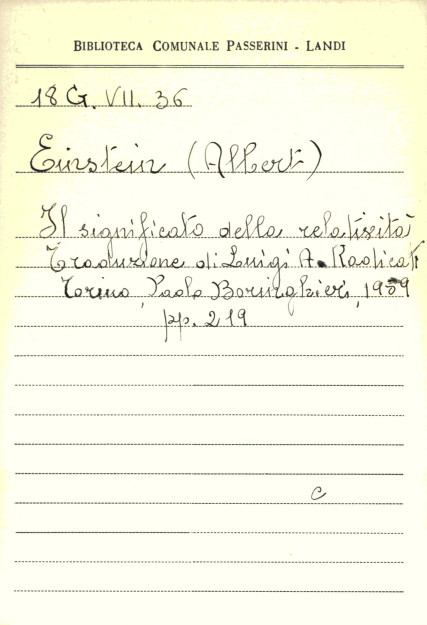 BIBLIOTECA COMUNALE PASSERINI - LANDI
18 G. VII. 36
Einstein (Albert)
Il significato della relatività
Traduzione di Luigi A. Radicati
Torino, Paolo Boringhieri, 1959
pp. 219
c